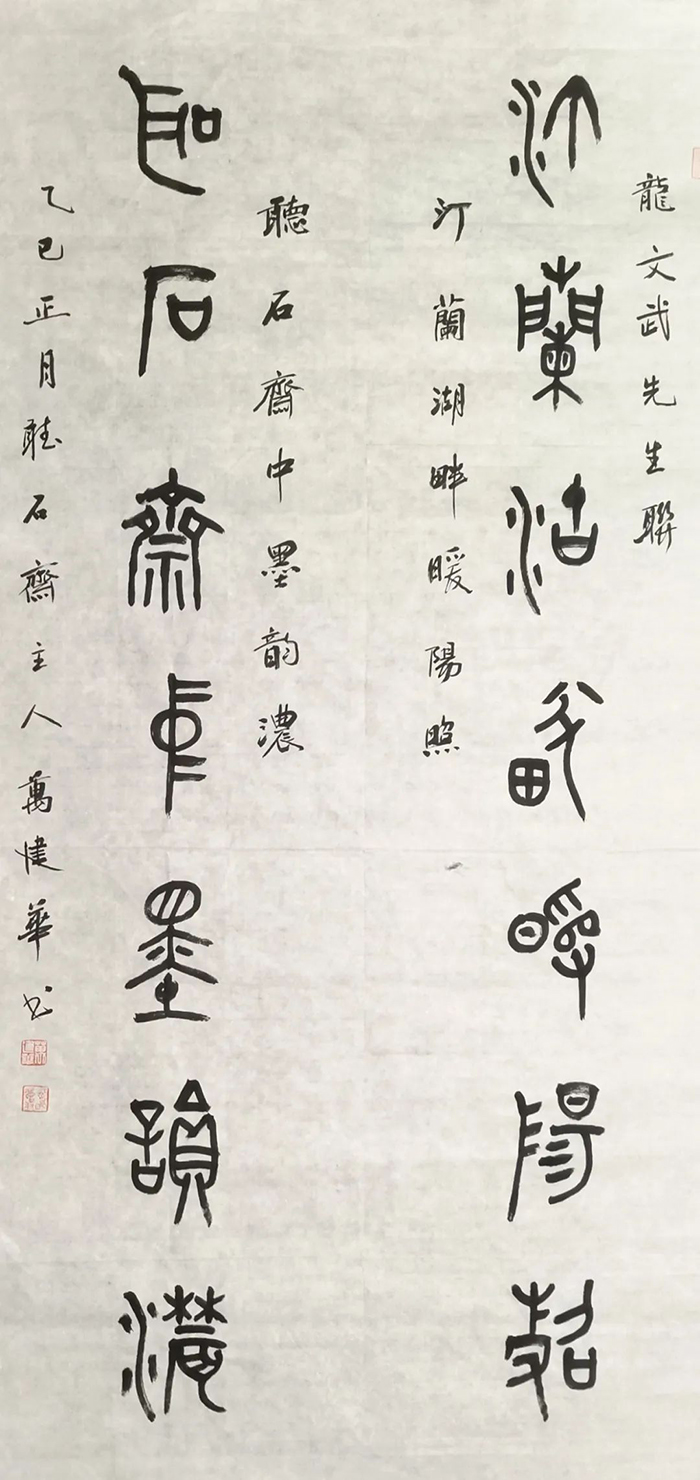 龍文武先生聯
汀蘭湖畔暖陽照
汀蘭湖畔暖陽照
聽石齋中墨韵濃
聽石齋中墨韻濃
乙巳正月聴石齋主人萬建華书